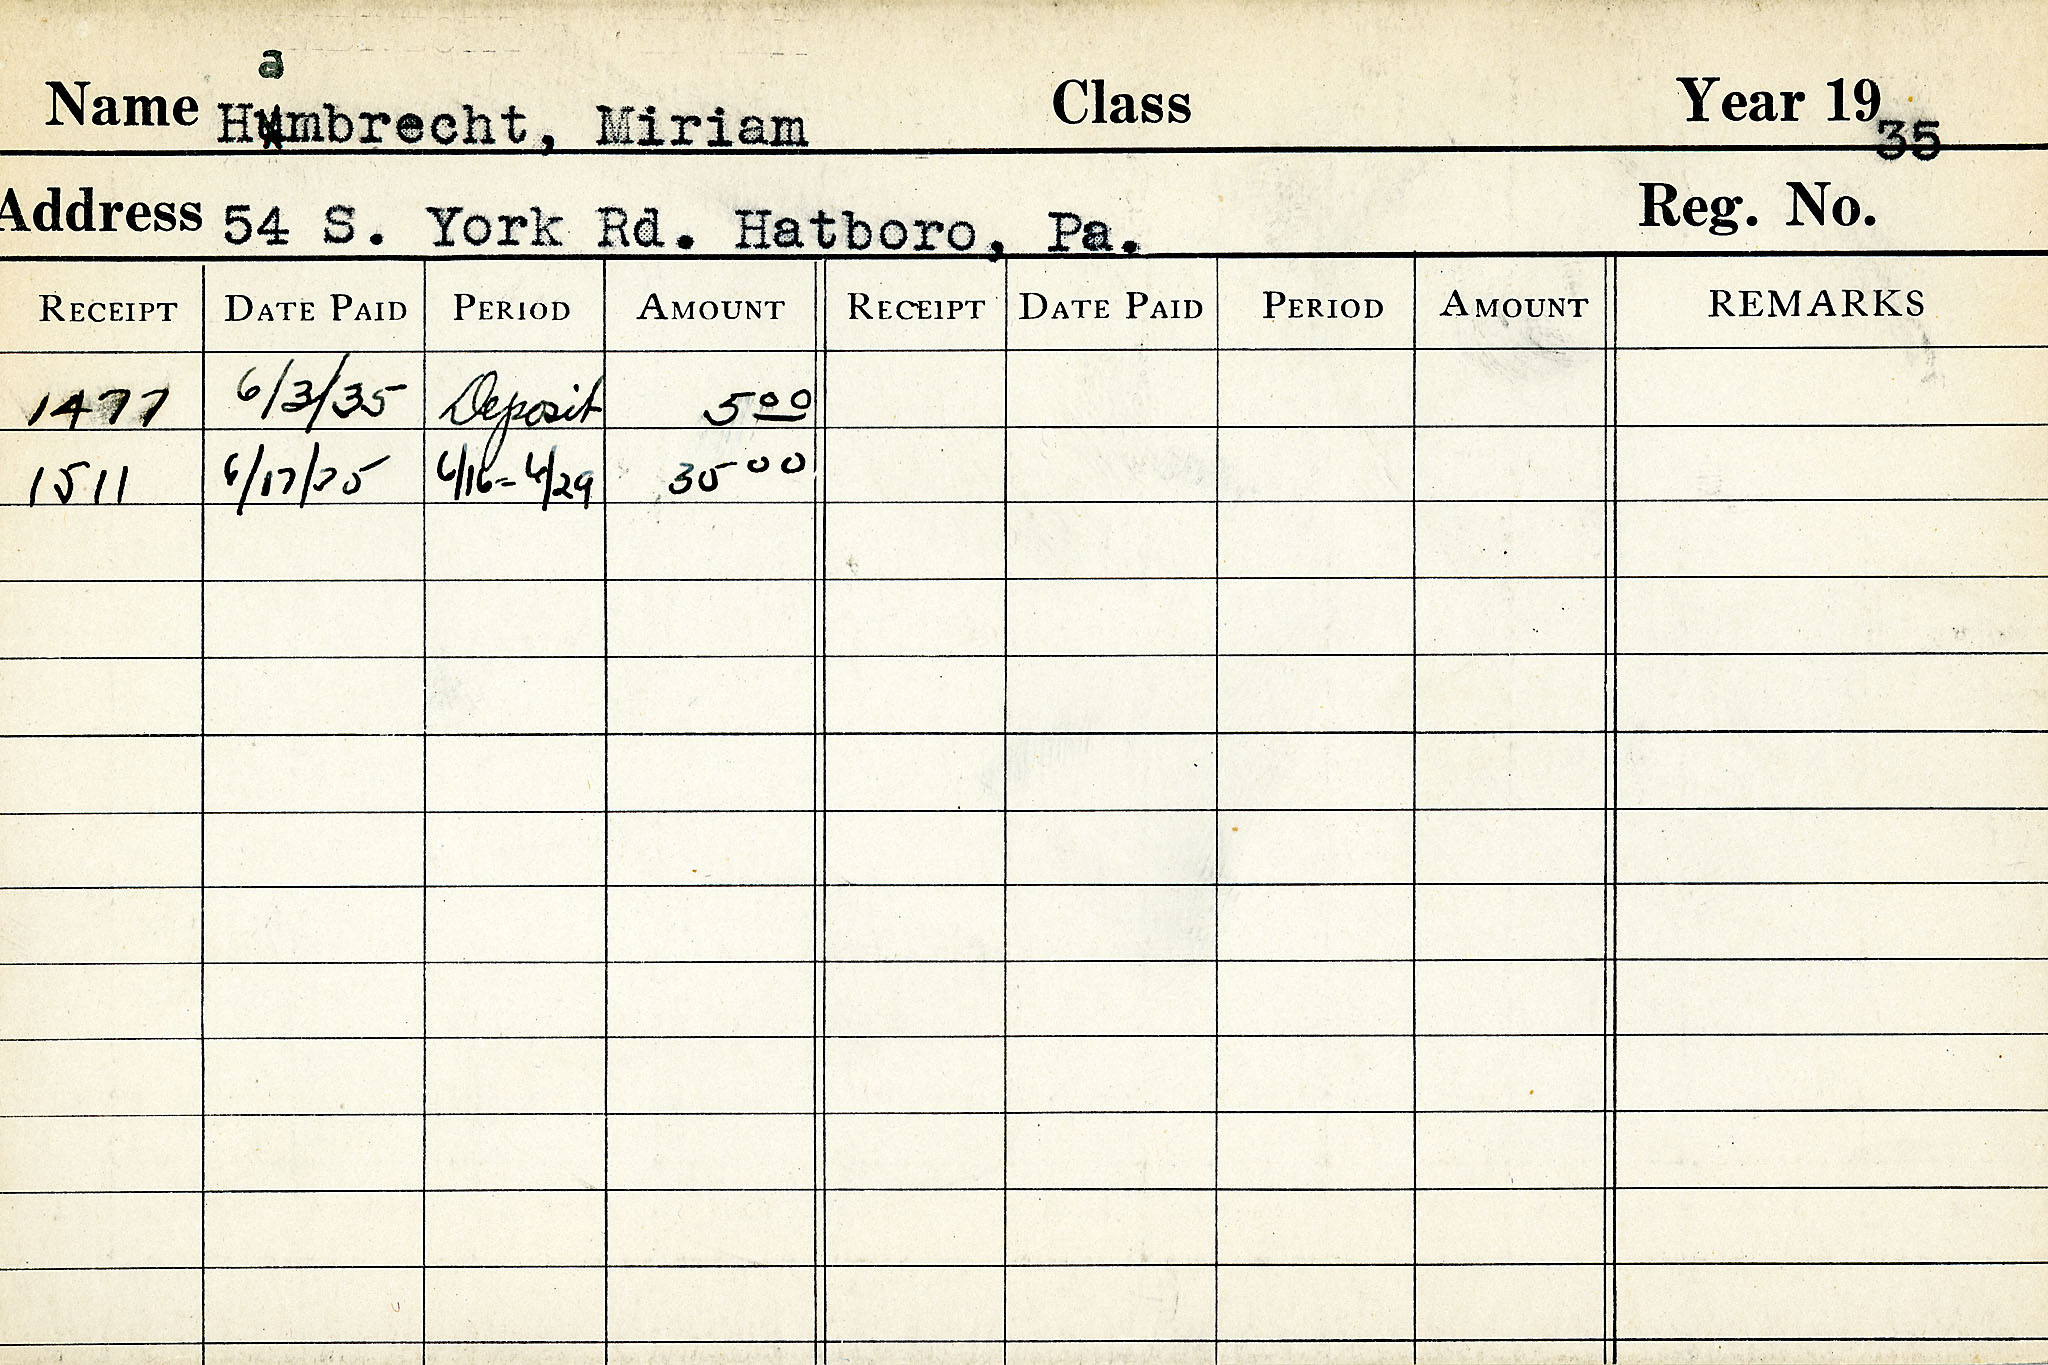 a
Name Humbrecht, Miriam Class Year 1935
Address 54 S. York Rd. Hatboro, Pa. Reg. No.
RECEIPT DATE PAID PERIOD AMOUNT RECEIPT DATE PAID PERIOD AMOUNT REMARKS
1477 6/3/35 Deposit 5 00
1511 6/17/35 6/16-6/29 35 00